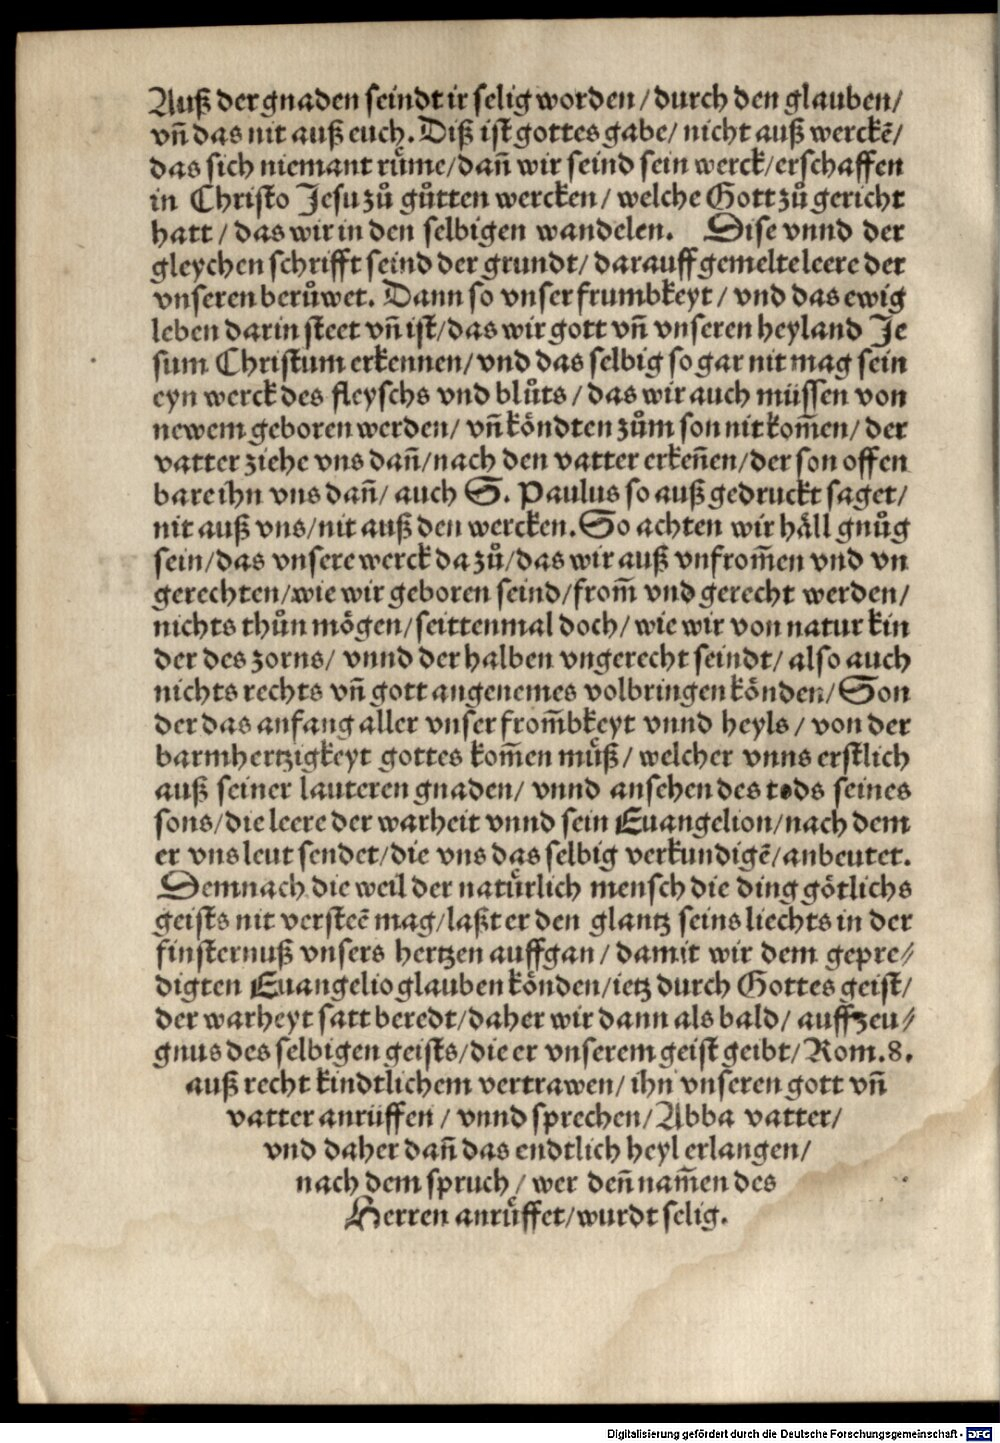 Auß der gnaden seindt ir selig worden / durch den glauben /
vñ das nit auß euch. Diß ist gottes gabe / nicht auß werckẽ /
das sich niemant ruͤme / dañ wir seind sein werck / erschaffen
in Christo Jesu zuͦ guͦtten wercken / welche Gott zuͦ gericht
hatt / das wir in den selbigen wandelen. Dise vnnd der
gleychen schrifft seind der grundt / darauff gemelte leere der
vnseren beruͦwet. Dann so vnser frumbkeyt / vnd das ewig
leben darin steet vñ ist / das wir gott vñ vnseren heyland Je
sum Christum erkennen / vnd das selbig so gar nit mag sein
eyn werck des fleyschs vnd bluͦts / das wir auch müssen von
newem geboren werden / vñ koͤndten zuͦm son nit kom̃en / der
vatter ziehe vns dañ / nach den vatter erkeñen / der son offen
bare ihn vns dañ / auch S. Paulus so auß gedruckt saget /
nit auß vns / nit auß den wercken. So achten wir haͤll gnuͦg
sein / das vnsere werck da zuͦ / das wir auß vnfrom̃en vnd vn
gerechten / wie wir geboren seind / from̃ vnd gerecht werden /
nichts thuͦn moͤgen / seittenmal doch / wie wir von natur kin
der des zorns / vnnd der halben vngerecht seindt / also auch
nichts rechts vñ gott angenemes volbringen koͤnden / Son
der das anfang aller vnser from̃bkeyt vnnd heyls / von der
barmhertzigkeyt gottes kom̃en muͤß / welcher vnns erstlich
auß seiner lauteren gnaden / vnnd ansehen des tods seines
sons / die leere der warheit vnnd sein Euangelion / nach dem
er vns leut sendet / die vns das selbig verkundigẽ / anbeutet.
Demnach die weil der natuͤrlich mensch die ding goͤtlichs
geists nit versteẽ mag / laßt er den glantz seins liechts in der
finsternuß vnsers hertzen auffgan / damit wir dem gepre⸗
digten Euangelio glauben koͤnden / ietz durch Gottes geist /
der warheyt satt beredt / daher wir dann als bald / auff zeu⸗
gnus des selbigen geists / die er vnserem geist geibt / Rom. 8.
auß recht kindtlichem vertrawen / ihn vnseren gott vñ
vatter anrüffen / vnnd sprechen / Abba vatter /
vnd daher dañ das endtlich heyl erlangen /
nach dem spruch / wer deñ nam̃en des
Herren anruͤffet / wurdt selig.
Digitalisierung gefördert durch die Deutsche Forschungsgemeinschaft - DFG